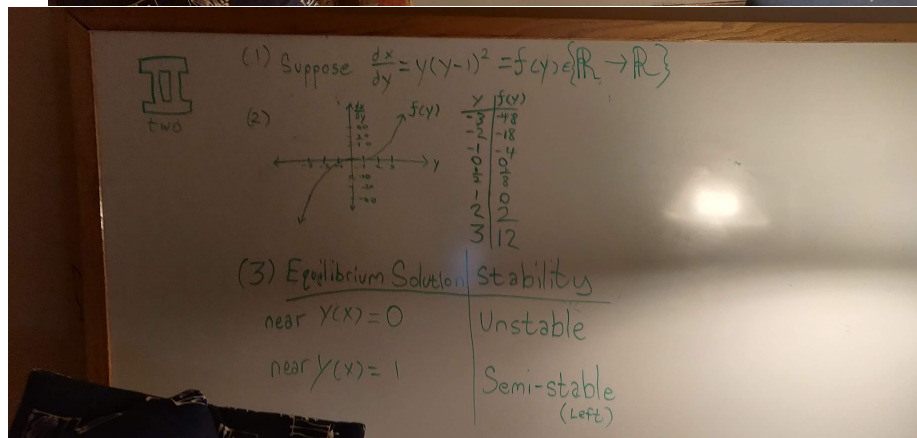 II
two
(1) Suppose dx/dy = y(y-1)² = f(y) ∈ {ℝ → ℝ}
(2)
dx/dy
f(y)
y
y | f(y)
-3 | -48
-2 | -18
-1 | -4
0 | 0
1 | 0
2 | 2
3 | 12
(3) Equilibrium Solution | Stability
near y(x) = 0 | Unstable
near y(x) = 1 | Semi-stable
(Left)